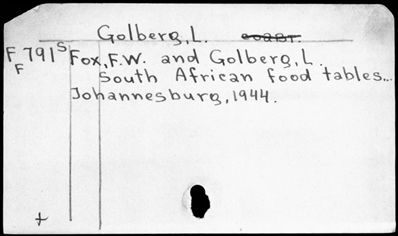 Golberg, L.
F 791 S Fox, F.W. and Golberg, L.
F South African food tables...
Johannesburg, 1944.